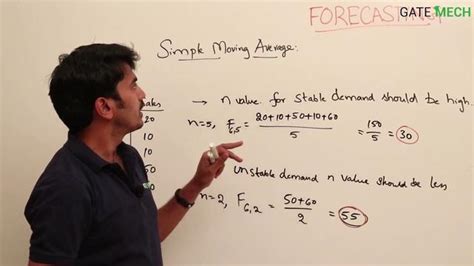 FORECASTING
GATE MECH
Simple Moving Average:
Sales
20
10
10
→ n value for stable demand should be high.
n=5, F6,5 = 20+10+50+10+60 / 5 = 150 / 5 = 30
unstable demand n value should be less
n=2, F6,2 = 50+60 / 2 = 55